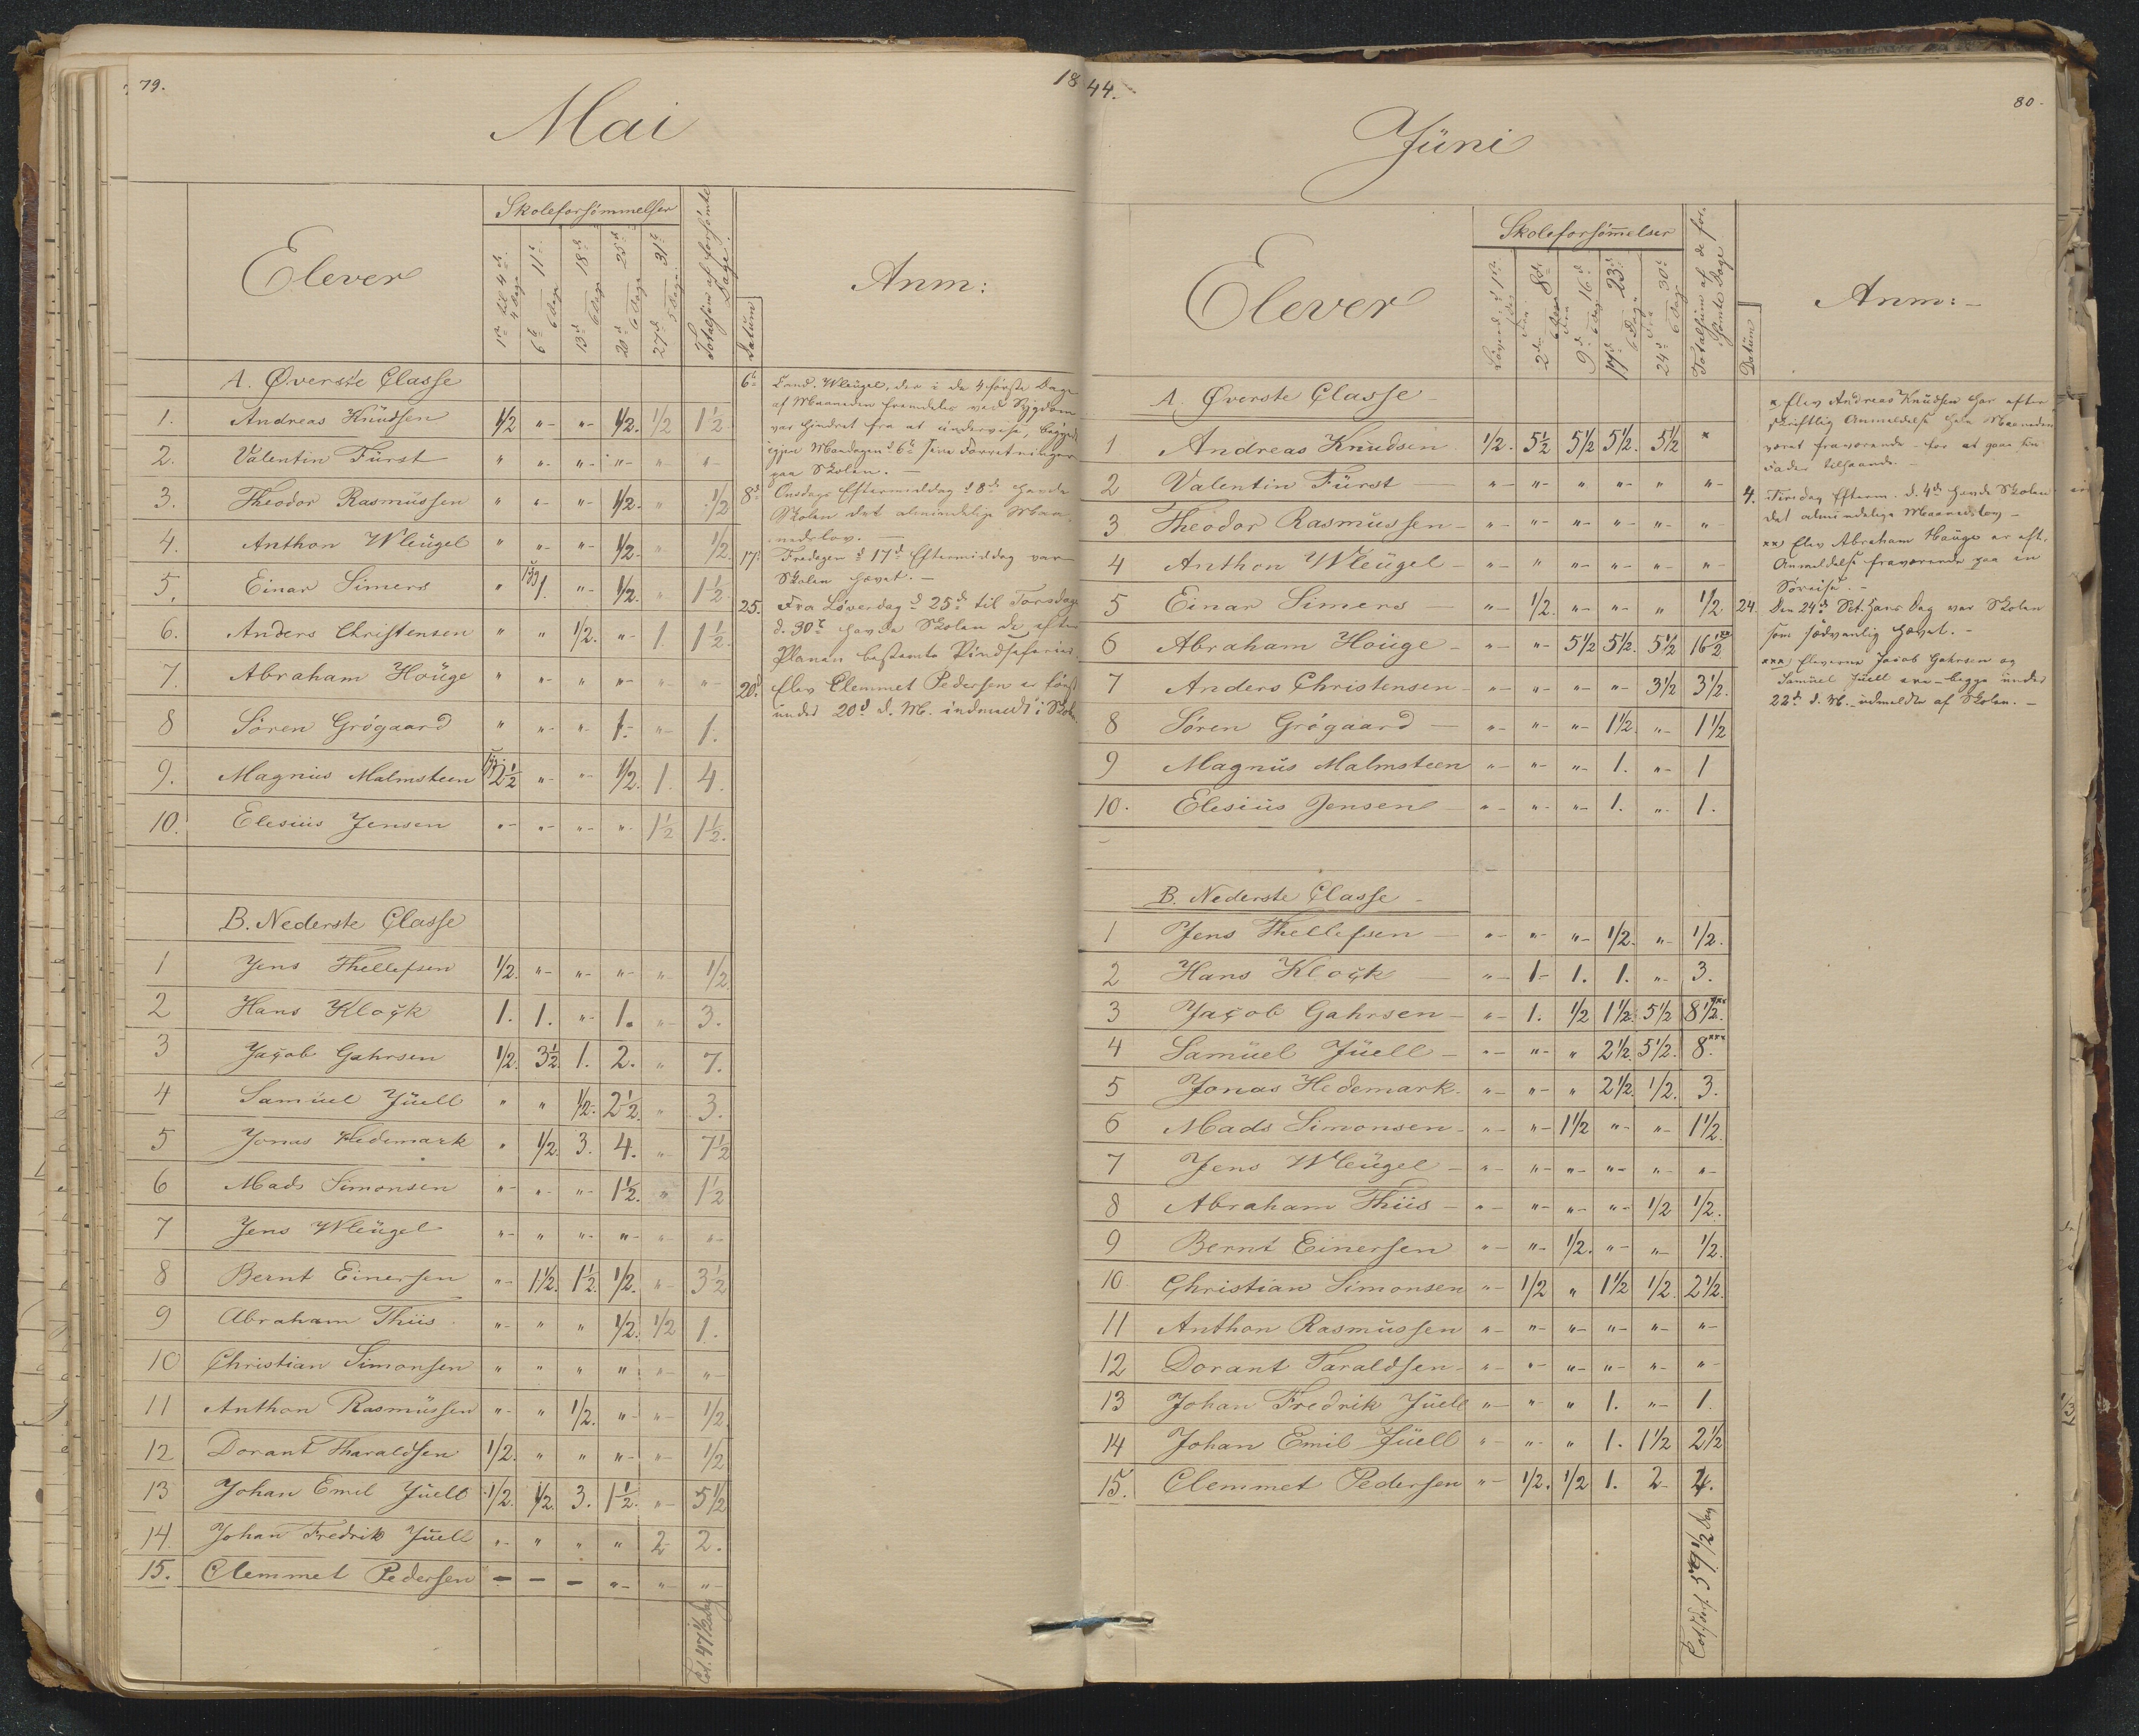 79.
18
Mai
Elever
Skoleforsömmelser
1ste til 4de 4 Dage
6te — 11te 6 Dage
13de — 18de 6 Dage
20de — 25de 6 Dage
27de — 31te 5 Dage
Totalsum af forsömte Dage.
Datum
Anm:
A. Øverste Classe
1. Andreas Knüdsen 1/2 „- „- 1/2. 1/2 1 1/2
2. Valentin Fürst „ „- „- „- „- „-
3. Theodor Rasmüssen „ „- „- 1/2. „ 1/2
4. Anthon Wleügel „ „- „- 1/2. „- 1/2.
5. Einar Simers „ syg 1. „- 1/2. „ 1 1/2
6. Anders Christensen „ „ 1/2. „- 1. 1 1/2.
7. Abraham Hoüge „ „- „ „- „- „-
8 Sören Grógaard „ „- „- 1.- „- 1.
9. Magnüs Malmsteen syg 2 1/2 „- „- 1/2. 1. 4.
10. Elesiüs Jensen „- „- „- „- 1 1/2 1 1/2.
B. Nederste Classe
1 Jens Thellefsen 1/2. „- „- „- „ 1/2.
2 Hans Klock 1. 1. „- 1. „- 3.
3 Jacob Gahrsen 1/2. 3 1/2 1. 2. „ 7.
4 Samüel Jüell „ „ 1/2. 2 1/2. „ 3.
5 Jonas Hedemark „ 1/2. 3. 4. „- 7 1/2
6 Mads Simonsen „- „- „- 1 1/2. „ 1 1/2
7 Jens Wleügel „- „ „- „- „- „-
8 Bernt Einersen „- 1 1/2. 1 1/2. 1/2. „- 3 1/2
9 Abraham Thiis „- „ „ 1/2. 1/2 1.
10 Christian Simonsen „ „ „ „ „- „-
11 Anthon Rasmüssen „- „ 1/2. „- „- 1/2.
12 Dorant Tharaldsen 1/2. „ „ „- „- 1/2
13 Johan Emil Jüell 1/2. 1/2. 3. 1 1/2. „- 5 1/2
14. Johan Fredrik Jüell „- „ „ „ 2 2.
15. Clemmet Pedersen - - - „- „- „-
Tot. 47 1/2 Dag
6te Cand. Wleügel, der i de 4 første Dage
af Maaneden fremdeles ved Sygdom
var hindret fra at ündervise, begyndte
igjen Mandagen d. 6te sine Forretninger
paa Skolen. —
8de Onsdags Eftermiddag d 8de havde
Skolen det almindelige Maa-
nedslov. —
17. Fredagen d 17de Eftermiddag var
Skolen hævet. —
25. Fra Løverdag d 25de til Torsdag
d. 30te havde Skolen de efter
Planen bestemte Pindseferier.
20d Elev Clemmet Pedersen er først
under 20d d. M. indmeldt i Skolen
44.
80-
Jüni
Elever
Skoleforsömelser
Løverd. d 1ste 1 Dag
Fra 2den — 8de 6 Dage
Fra 9d — 16d 6 Dage
17d — 23d 6 Dage
Fra 24d — 30te 6 Dage
Totalsum af de for-
sömte Dage
Datüm
Anm:-
A. Øverste Classe
1 Andreas Knüdsen 1/2. 5 1/2 5 1/2 5 1/2. 5 1/2 *
2 Valentin Fürst „- „- „ „- „ „-
3 Theodor Rasmüssen „- „- „- „- „- „-
4 Anthon Wleügel „- „ „- „- „- „-
5 Einar Simers „- 1/2. „- „- „ 1/2.
6 Abraham Hoüge „- „- 5 1/2 5 1/2. 5 1/2 16 1/2 xx
7 Anders Christensen „- „- „- „- 3 1/2 3 1/2.
8 Sören Grógaard „- „- „- 1 1/2. „- 1 1/2
9 Magnüs Malmsteen „- „- „- 1. „- 1
10. Elesiüs Jensen „- „- „- 1. „- 1.
B. Nederste Classe
1 Jens Thellefsen „- „- „- 1/2. „- 1/2.
2 Hans Klock „- 1- 1. 1. „- 3.
3 Jacob Gahrsen „- 1. 1/2 1 1/2. 5 1/2 8 1/2. xxx
4 Samüel Jüell „- „- „ 2 1/2. 5 1/2. 8. xxx
5 Jonas Hedemark. „- „- „ 2 1/2. 1/2. 3.
6 Mads Simonsen „- „- 1 1/2 „- „- 1 1/2.
7 Jens Wleügel „- „- „- „- „- „-
8 Abraham Thiis „- „- „- „- 1/2 1/2.
9 Bernt Einersen „- „- 1/2. „- „- 1/2.
10 Christian Simonsen „- 1/2 „ 1 1/2 1/2. 2 1/2.
11 Anthon Rasmüssen „- „- „- „- „- „-
12 Dorant Taraldsen „- „- „- „- „- „-
13 Johan Fredrik Jüell „- „- „ 1. „- 1.
14 Johan Emil Jüell „- „- „ 1. 1 1/2 2 1/2
15. Clemmet Pedersen „- 1/2. 1/2 1. 2 4.
59 1/2 Dag
x Elev Andreas Knüdsen har efter
skriftlig Anmeldelse hele Maaneden
været fraværende for at gaae sin
Fader tilhaande. —
4. Tirsdag Efterm. d. 4de havde Skolen
det almindelige Maanedslov —
xx) Elev Abraham Haüge er eft.
Anmeldelse fraværende paa en
Søreise. —
24. Den 24de Sct. Hans Dag var Skolen
som sædvanlig hævet. —
xxx) Eleverne Jacob Gahrsen og
Samüel Jüell ere begge ünder
22de d. M. udmeldte af Skolen. —